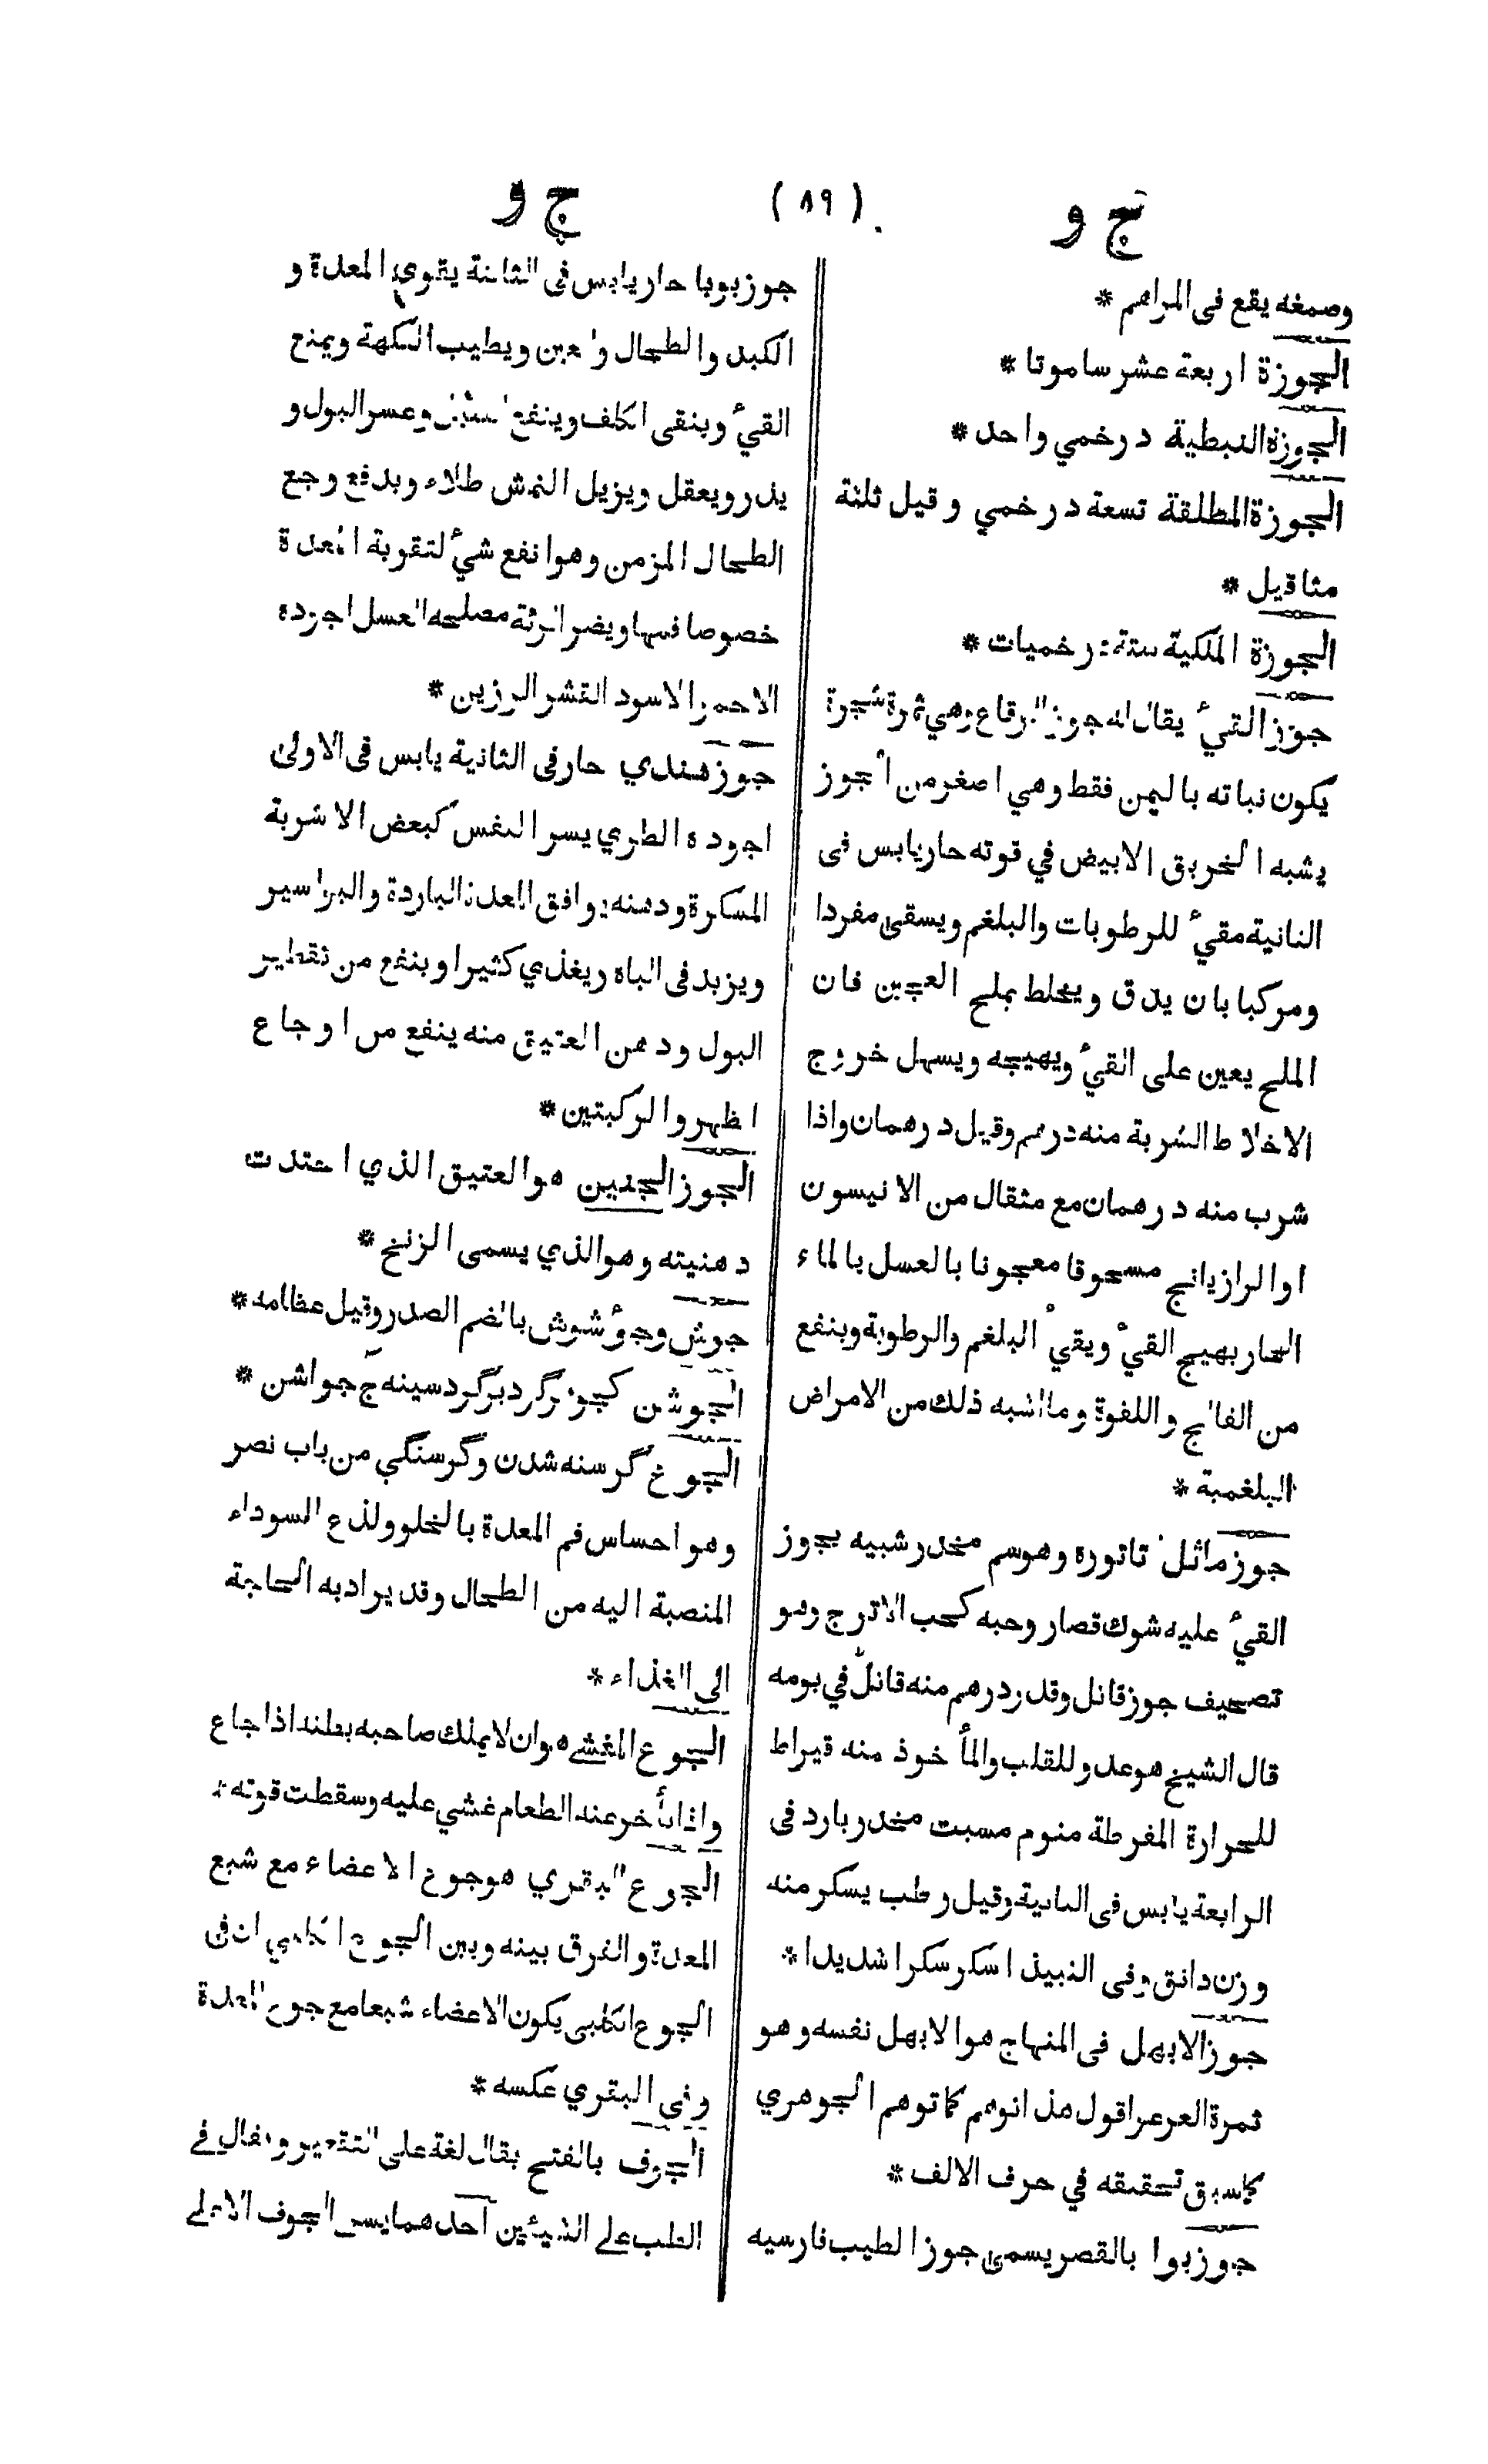 ج و
( ٨٩ )
ج و
وصمغه يقع فى المراهم *
الجوزة اربعة عشر ساموتا *
الجوزة النبطية درخمي واحد *
الجوزة المطلقة تسعة درخمي وقيل ثلثة
مثاقيل *
الجوزة الملكية ستة درخميات *
جوز القئ يقال له جوز الرقاع وهي ثمرة شجرة
يكون نباته باليمن فقط وهي اصغر من الجوز
يشبه الخربق الابيض في قوته حار يابس فى
الثانية مقئ للرطوبات والبلغم ويسقى مفردا
ومركبا بان يدق ويخلط بملح العجين فان
الملح يعين على القئ ويهيجه ويسهل خروج
الاخلاط الشربة منه درهم وقيل درهمان واذا
شرب منه درهمان مع مثقال من الانيسون
او الرازيانج مسحوقا معجونا بالعسل بالماء
الحار يهيج القئ ويقئ البلغم والرطوبة وينفع
من الفالج واللقوة وما اشبه ذلك من الامراض
البلغمية *
جوز ماثل تاتوره وهو سم مخدر شبيه بجوز
القئ عليه شوك قصار وحبه كحب الاترج وهو
تصحيف جوز قاتل وقدر درهم منه قاتل في يومه
قال الشيخ هو عدو للقلب والمأخوذ منه قيراط
للحرارة المفرطة منوم مسبت مخدر بارد فى
الرابعة يابس فى الثانية وقيل رطب يسكر منه
وزن دانق وفى النبيذ اسكر سكرا شديدا *
جوز الابهل فى المنهاج هو الابهل نفسه وهو
ثمرة العرعر اقول هذا توهم كما توهم الجوهري
كما سبق تحقيقه في حرف الالف *
جوزبوا بالقصر يسمى جوز الطيب فارسيه
جوز بويا حار يابس فى الثانية يقوي المعدة و
الكبد والطحال والعين ويطيب النكهة ويمنع
القئ وينقى الكلف وينفع السبل وعسر البول و
يدر ويعقل ويزيل النمش طلاء ويدفع وجع
الطحال المزمن وهو انفع شئ لتقوية المعدة
خصوصا فمها ويضر الرئة مصلحه العسل اجوده
الاحمر الاسود القشر الرزين *
جوز هندي حار فى الثانية يابس فى الاولى
اجوده الطري يسر النفس كبعض الاشربة
المسكرة ودهنه يوافق المعدة الباردة والبواسير
ويزيد فى الباه ويغذي كثيرا وينفع من تقطير
البول ودهن العتيق منه ينفع من اوجاع
الظهر والركبتين *
الجوز الجنين هو العتيق الذي احتدت
دهنيته وهو الذي يسمى الزنخ *
جوش وجؤشوش بالضم الصدر وقيل عظامه *
الجوشن كجوهر گرد برگرد سينه ج جواشن *
الجوع گرسنه شدن وگرسنگي من باب نصر
وهو احساس فم المعدة بالخلو ولذع السوداء
المنصبة اليه من الطحال وقد يراد به الحاجة
الى الغذاء *
الجوع المغشي هو ان لا يملك صاحبه بطنه اذا جاع
واذا تأخر عنه الطعام غشي عليه وسقطت قوته *
الجوع البقري هو جوع الاعضاء مع شبع
المعدة والفرق بينه وبين الجوع الكلبي ان فى
الجوع الكلبى يكون الاعضاء شبعا مع جوع المعدة
وفى البقري عكسه *
الجوف بالفتح يقال لغة على التقعير ويقال في
الطب على الشيئين احدهما يسمى الجوف الاعلى